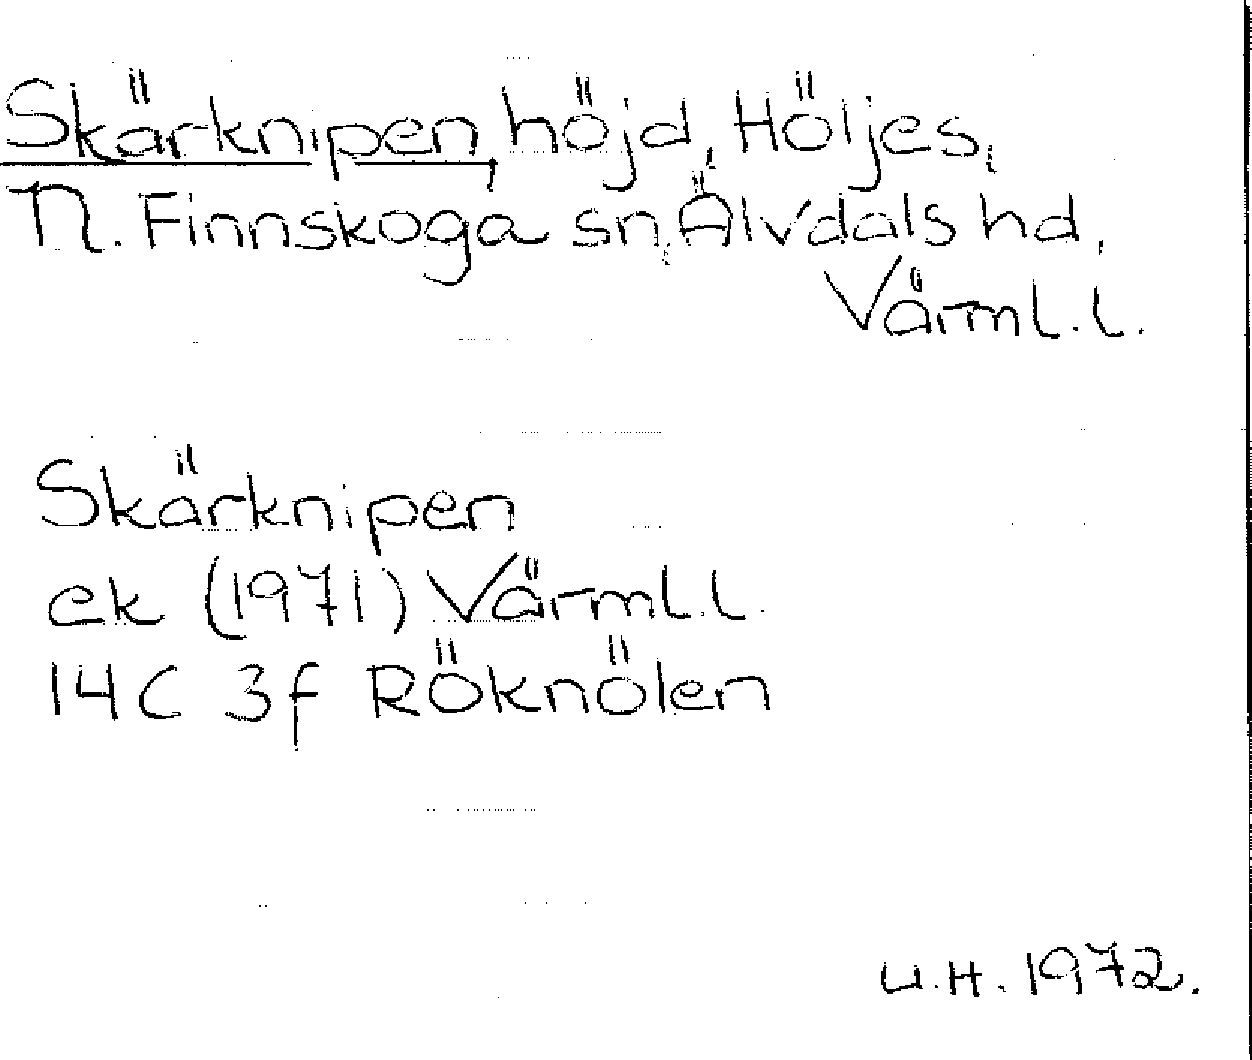 Skärknipen, höjd, Höljes,
N. Finnskoga sn, Älvdals hd,
Värml. l.
Skärknipen
ek (1971) Värml. l.
14C 3f Röknölen
U.H. 1972.